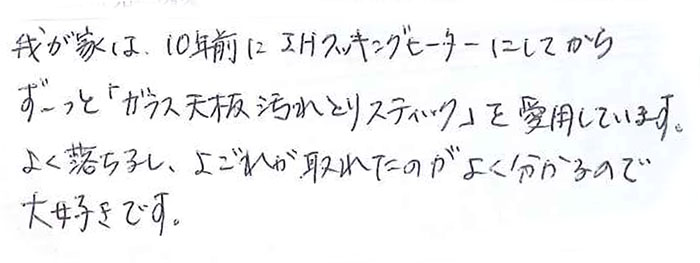 我が家は、10年前にIHクッキングヒーターにしてから
ずーっと「ガラス天板汚れとりスティック」を愛用しています。
よく落ちるし、よごれが取れたのがよく分かるので
大好きです。